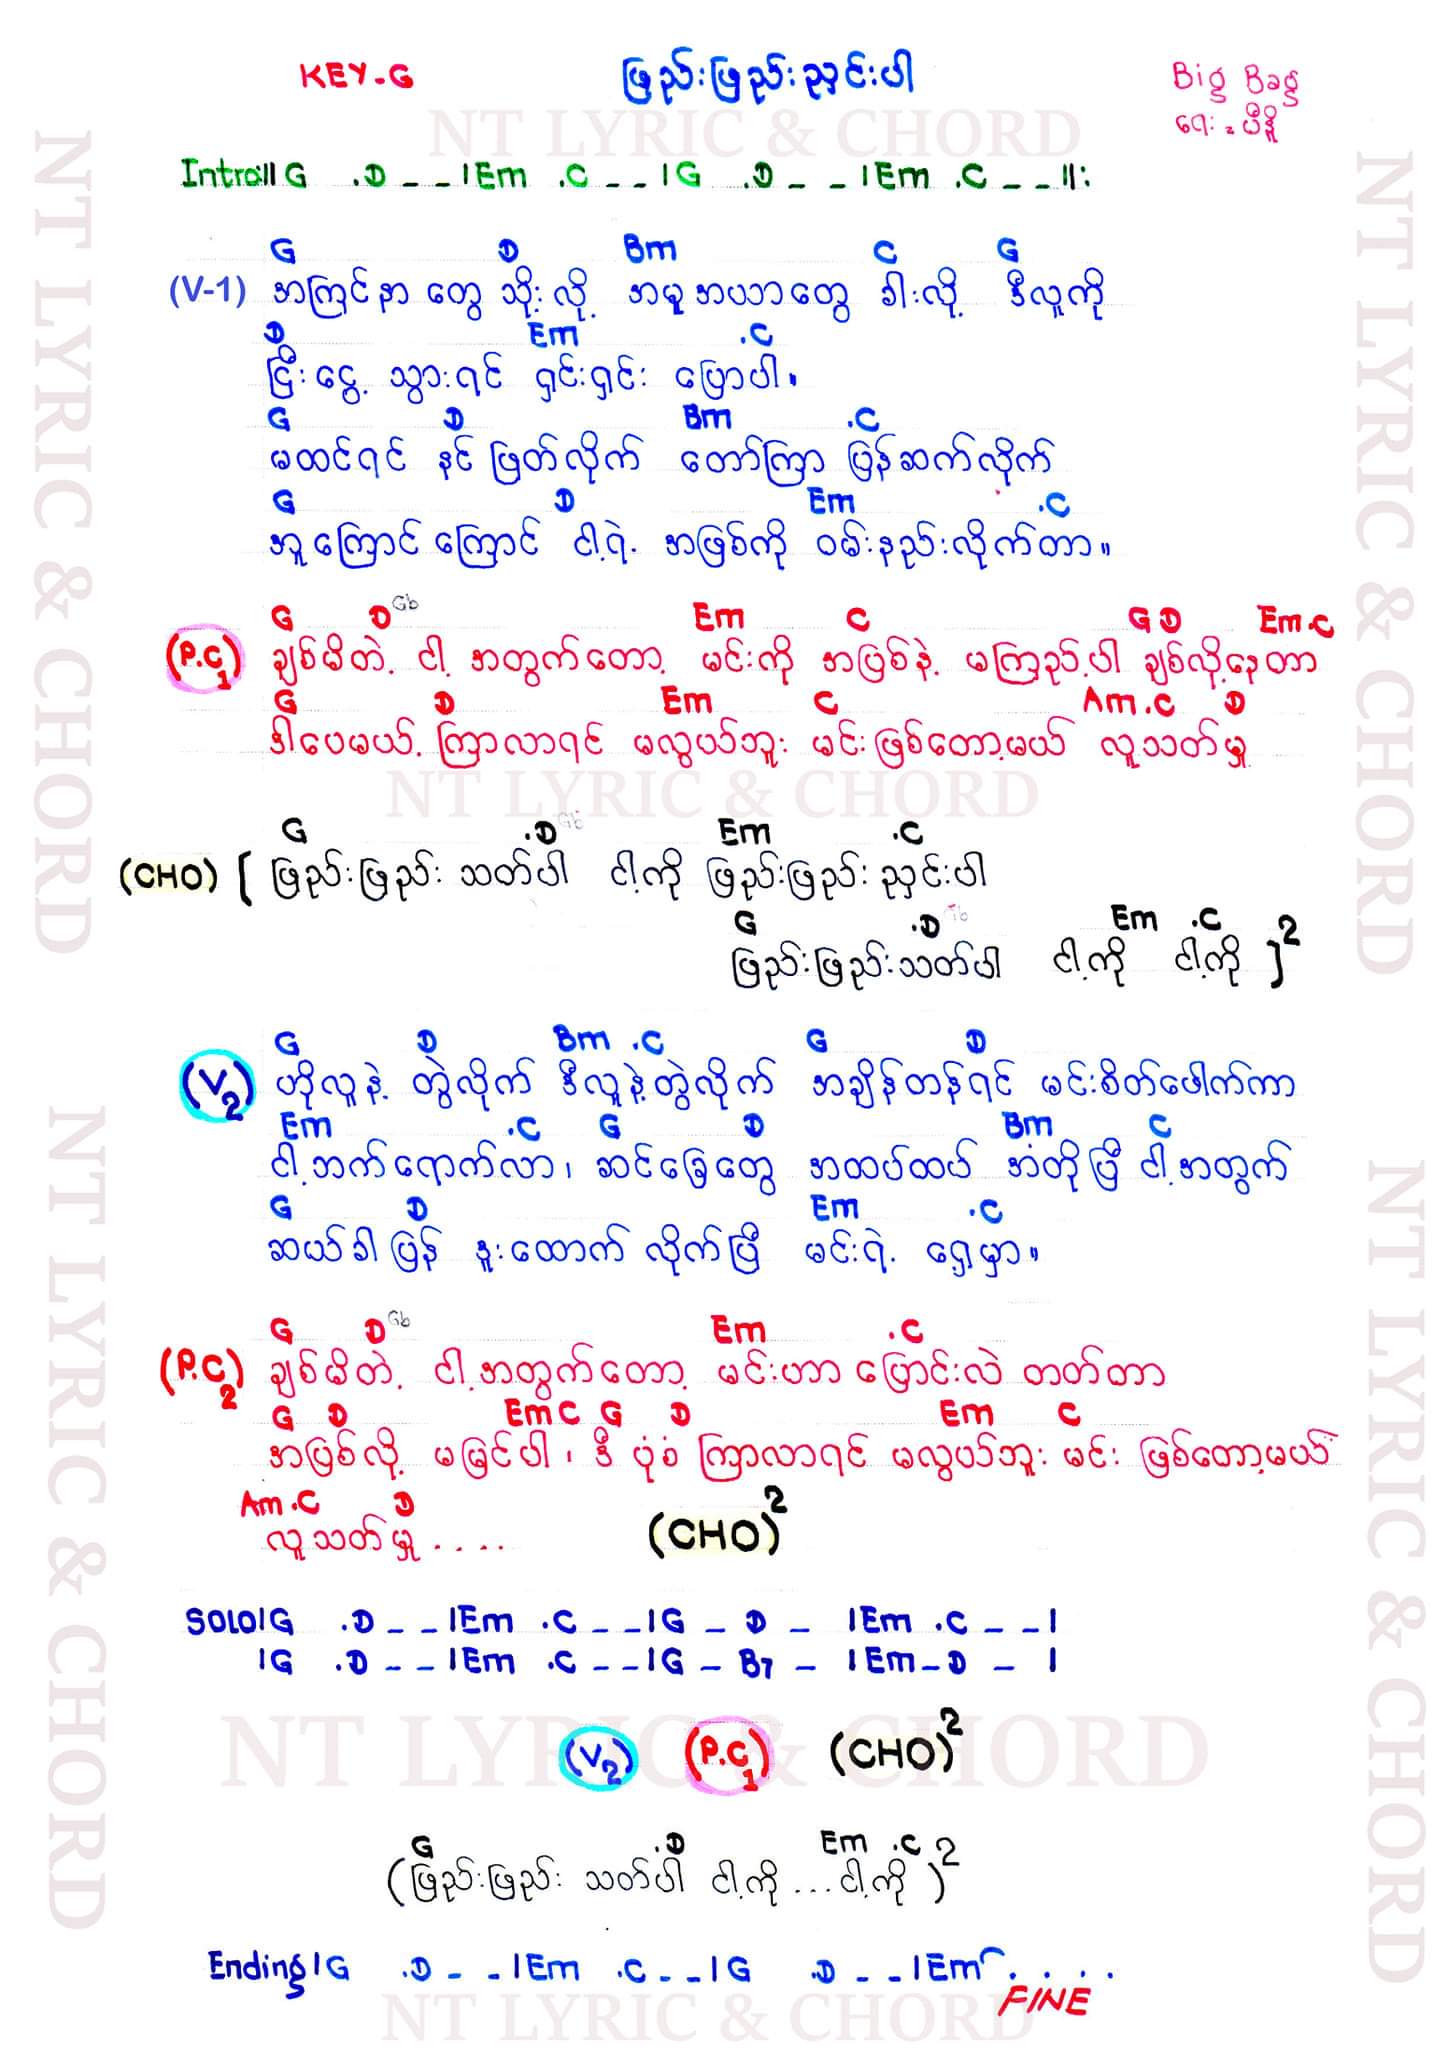 KEY-G ဖြည်းဖြည်းညှင်းပါ Big Bag
ရေး = ဗီနို
NT LYRIC & CHORD
Intro:|| G .D _ _ | Em .C _ _ | G .D _ _ | Em .C _ _ ||:
G D Bm C G
(V-1) အကြင်နာ တွေ သိုးလို့ အမူအယာတွေ ခါးလို့ ဒီလူကို
D Em .C
ငြီးငွေ့ သွားရင် ရှင်းရှင်း ပြောပါ။
G D Bm .C
မထင်ရင် နင် ဖြတ်လိုက် တော်ကြာ ပြန်ဆက်လိုက်
G D Em .C
အူကြောင်ကြောင် ငါ့ရဲ့ အဖြစ်ကို ဝမ်းနည်းလိုက်တာ။
G D Gb Em C G D Em .C
(P.C1) ချစ်မိတဲ့ ငါ့ အတွက်တော့ မင်းကို အပြစ်နဲ့ မကြည့်ပါ ချစ်လို့နေတာ
G D Em C Am .C D
ဒါပေမယ့် ကြာလာရင် မလွယ်ဘူး မင်းဖြစ်တော့မယ် လူသတ်မှု
NT LYRIC & CHORD
G .D Gb Em .C
(CHO) [ ဖြည်းဖြည်း သတ်ပါ ငါ့ကို ဖြည်းဖြည်း ညှင်းပါ
G .D Gb Em .C
ဖြည်းဖြည်းသတ်ပါ ငါ့ကို ငါ့ကို ]2
G D Bm .C G D
(V2) ဟိုလူနဲ့ တွဲလိုက် ဒီလူနဲ့တွဲလိုက် အချိန်တန်ရင် မင်းစိတ်ဖောက်ကာ
Em .C G D Bm C
ငါ့ဘက်ရောက်လာ၊ ဆင်ခြေတွေ အထပ်ထပ် အံတိုပြီ ငါ့အတွက်
G D Em .C
ဆယ်ခါပြန် ဒူးထောက် လိုက်ပြီ မင်းရဲ့ ရှေ့မှာ။
G D Gb Em .C
(P.C2) ချစ်မိတဲ့ ငါ့အတွက်တော့ မင်းဟာ ပြောင်းလဲ တတ်တာ
G D Em C G D Em C
အပြစ်လို့ မမြင်ပါ၊ ဒီ ပုံစံ ကြာလာရင် မလွယ်ဘူး မင်း ဖြစ်တော့မယ်
Am .C D
လူသတ်မှု .... (CHO)2
SOLO | G .D _ _ | Em .C _ _ | G _ D _ | Em .C _ _ |
| G .D _ _ | Em .C _ _ | G _ B7 _ | Em _ D _ |
(V2) (P.C1) (CHO)2
NT LYRIC & CHORD
G .D Em .C
(ဖြည်းဖြည်း သတ်ပါ ငါ့ကို ... ငါ့ကို )2
Ending | G .D _ _ | Em .C _ _ | G .D _ _ | Em . . . .
FINE
NT LYRIC & CHORD
NT LYRIC & CHORD
NT LYRIC & CHORD
NT LYRIC & CHORD
NT LYRIC & CHORD